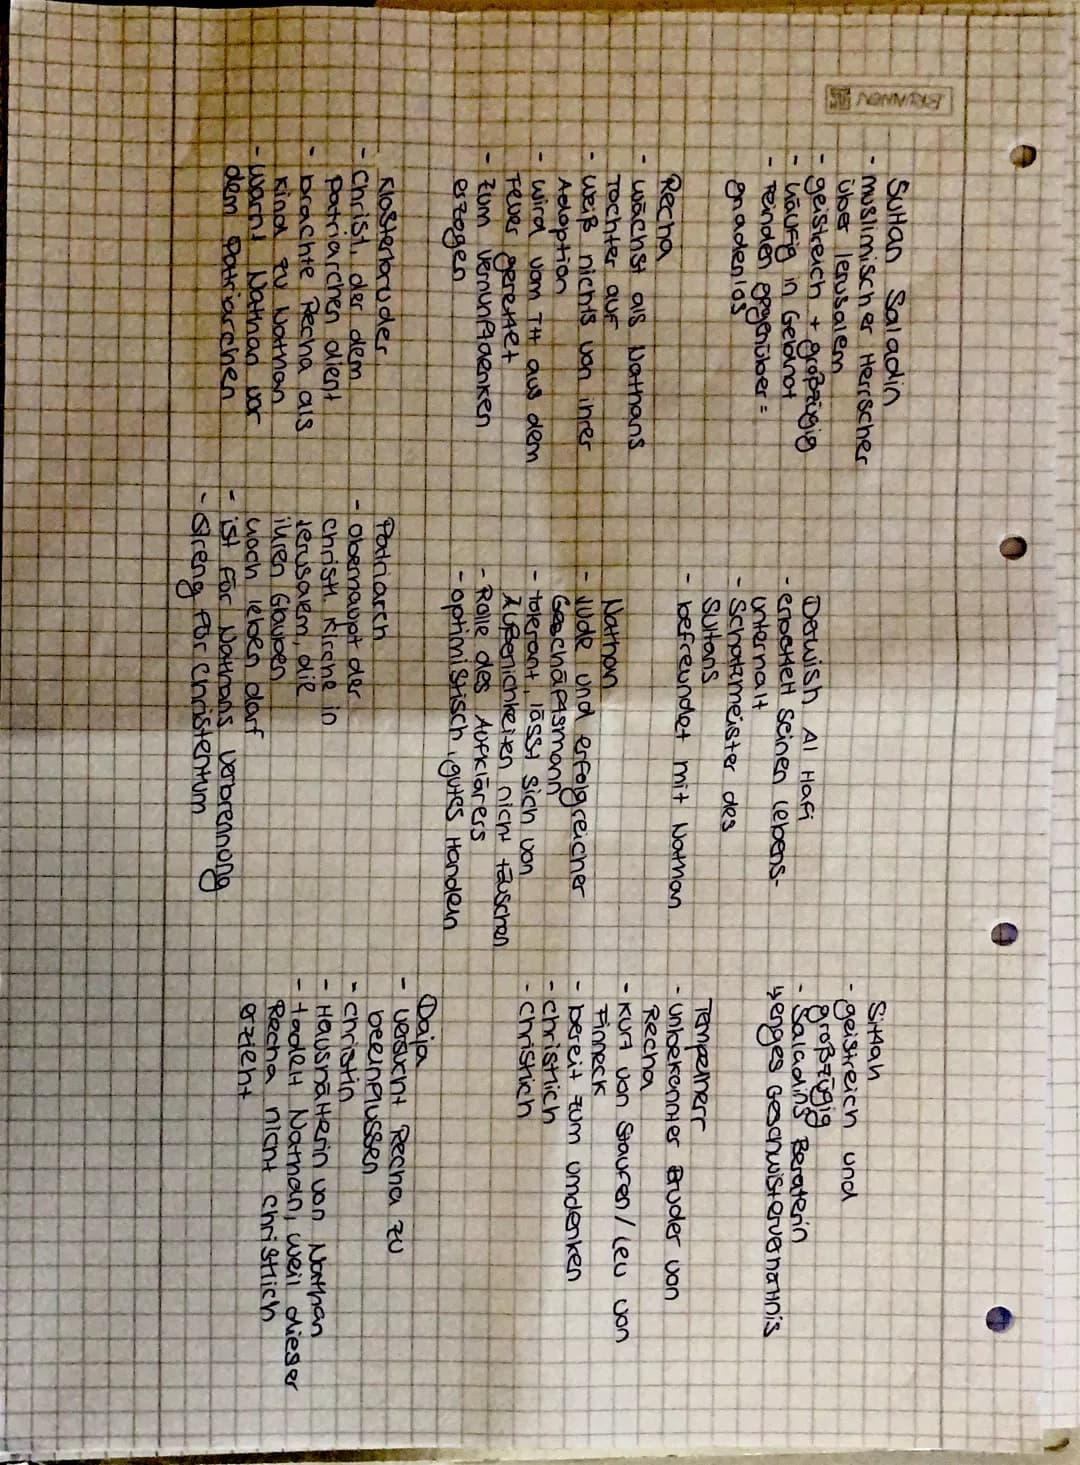 BRUNNEN
Sultan Saladin
- muslimischer Herrscher
über Jerusalem
- geistreich + großzügig
- häufig in Geldnot
- Feinden gegenüber =
gnadenlos
Derwish Al Hafi
- erbettelt seinen lebens-
unterhalt
- Schatzmeister des
Sultans
- befreundet mit Nathan
Sittah
- geistreich und
großzügig
- Saladins Beraterin
↳ enges Geschwisterverhältnis
Recha
- wächst als Nathans
Tochter auf
- weiß nichts von ihrer
Adoption
- wird vom TH aus dem
Feuer gerettet
- zum Vernunftdenken
erzogen
Nathan
- Jude und erfolgreicher
Geschäftsmann
- tolerant, lässt sich von
Äußerlichkeiten nicht täuschen
- Rolle des Aufklärers
- optimistisch, gutes Handeln
Tempelherr
- unbekannter Bruder von
Recha
- Kurt von Staufen / Leu von
Finneck
- bereit zum umdenken
- christlich
- christlich
Klosterbruder
- Christ, der dem
Patriarchen dient
- brachte Recha als
Kind zu Nathan
- warnt Nathan vor
dem Patriarchen
Patriarch
- oberhaupt der
christl. Kirche in
Jerusalem, die
ihren Glauben
noch leben darf
- ist für Nathans Verbrennung
- streng für Christentum
Daja
- versucht Recha zu
beeinflussen
- christin
- Haushälterin von Nathan
- tadelt Nathan, weil dieser
Recha nicht christlich
erzieht